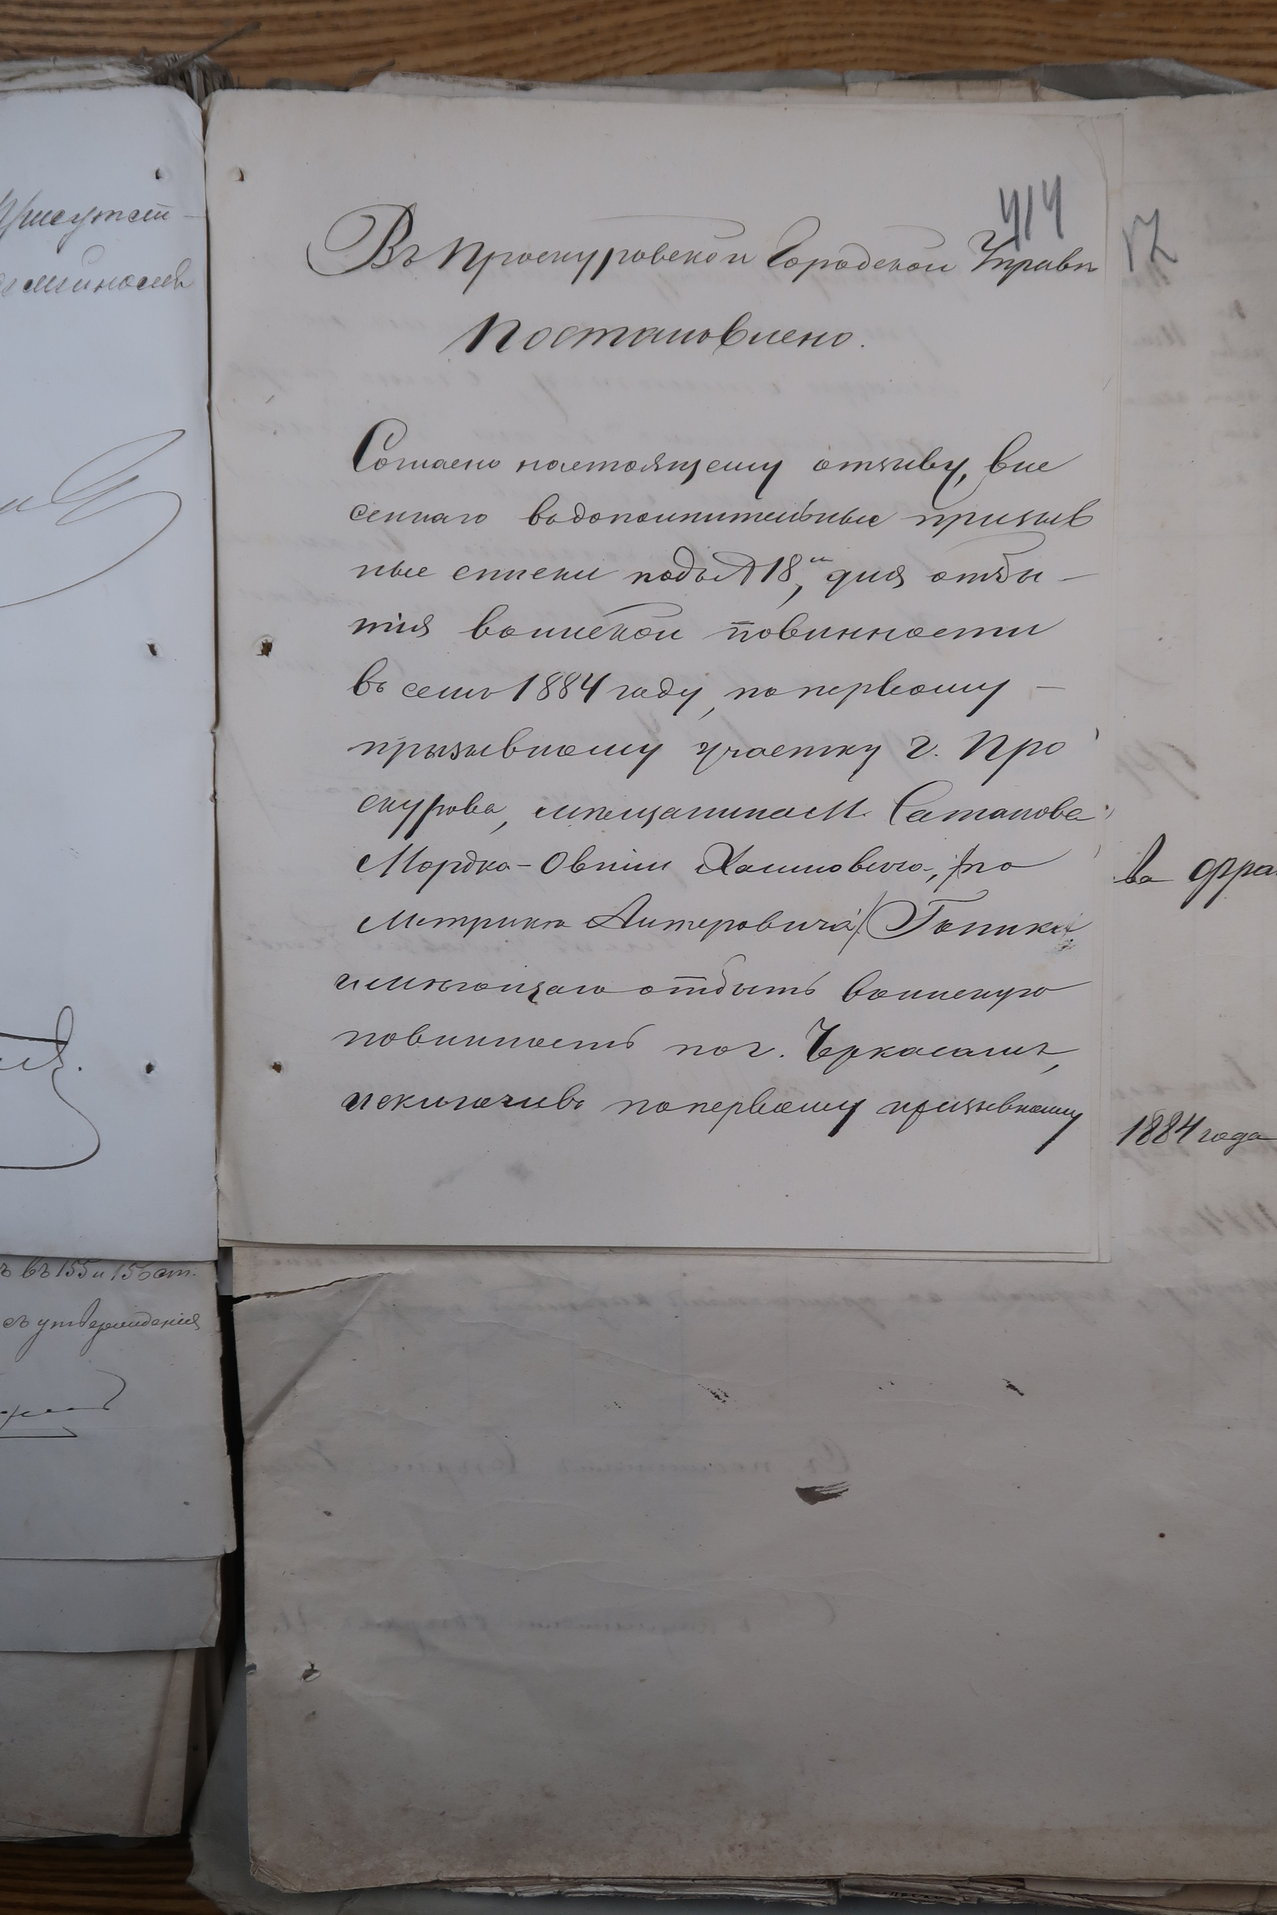 414
Въ Проскуровской Городской Управѣ
Постановлено.
Согласно настоящему отзыву, вне
сеннаго въдополнительные призыв
ные списки подъ № 18, для отбы-
тія воинской повинности
въ семъ 1884 году, по первому -
призывному участку г. Про
скурова, мѣщанина м. Сатанова
Мордко-Овшій Хаимовича, /по
Метрикѣ Антеровича/ Гопника
имѣющаго отбыть воинскую
повинность по г. Черкасамъ,
исключивъ по первому призывному
ва фра
1884 года
въ 155 и 156 ст.
съ утвержденія